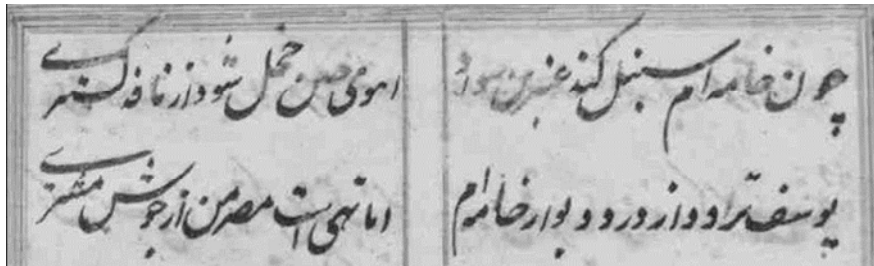 چون خامه ام سنبل کند عنبرین سواد
اهوی چین خجل شود از نافه گستری
یوسف تراود از در و دیوار خامه ام
اما تهی است مصر من از جوش مشتری